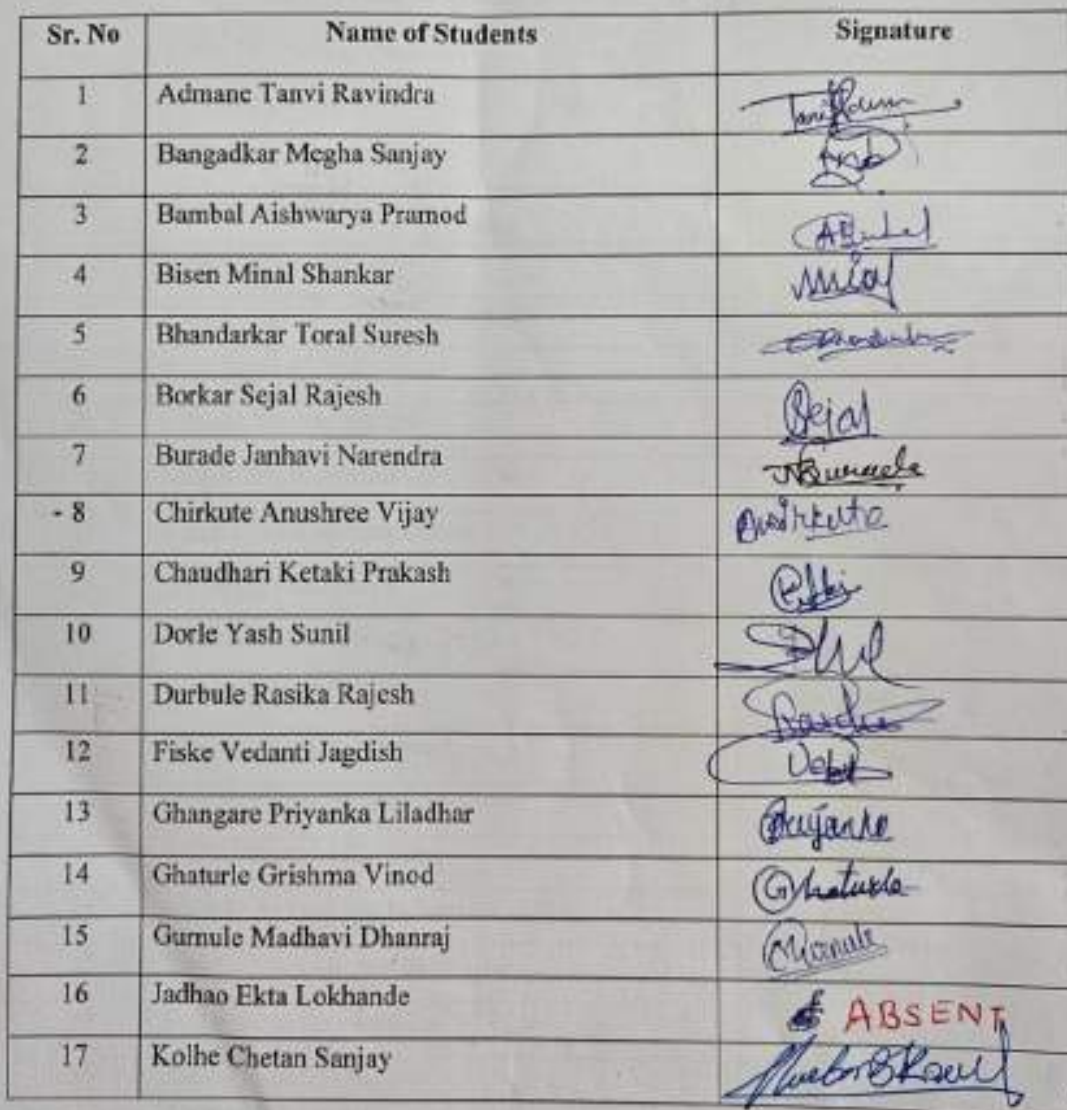 Sr. No Name of Students Signature
1 Admane Tanvi Ravindra
2 Bangadkar Megha Sanjay
3 Bambal Aishwarya Pramod
4 Bisen Minal Shankar
5 Bhandarkar Toral Suresh
6 Borkar Sejal Rajesh Sejal
7 Burade Janhavi Narendra
- 8 Chirkute Anushree Vijay
9 Chaudhari Ketaki Prakash
10 Dorle Yash Sunil
11 Durbule Rasika Rajesh
12 Fiske Vedanti Jagdish
13 Ghangare Priyanka Liladhar Priyanka
14 Ghaturle Grishma Vinod Ghaturle
15 Gumule Madhavi Dhanraj
16 Jadhao Ekta Lokhande ABSENT
17 Kolhe Chetan Sanjay